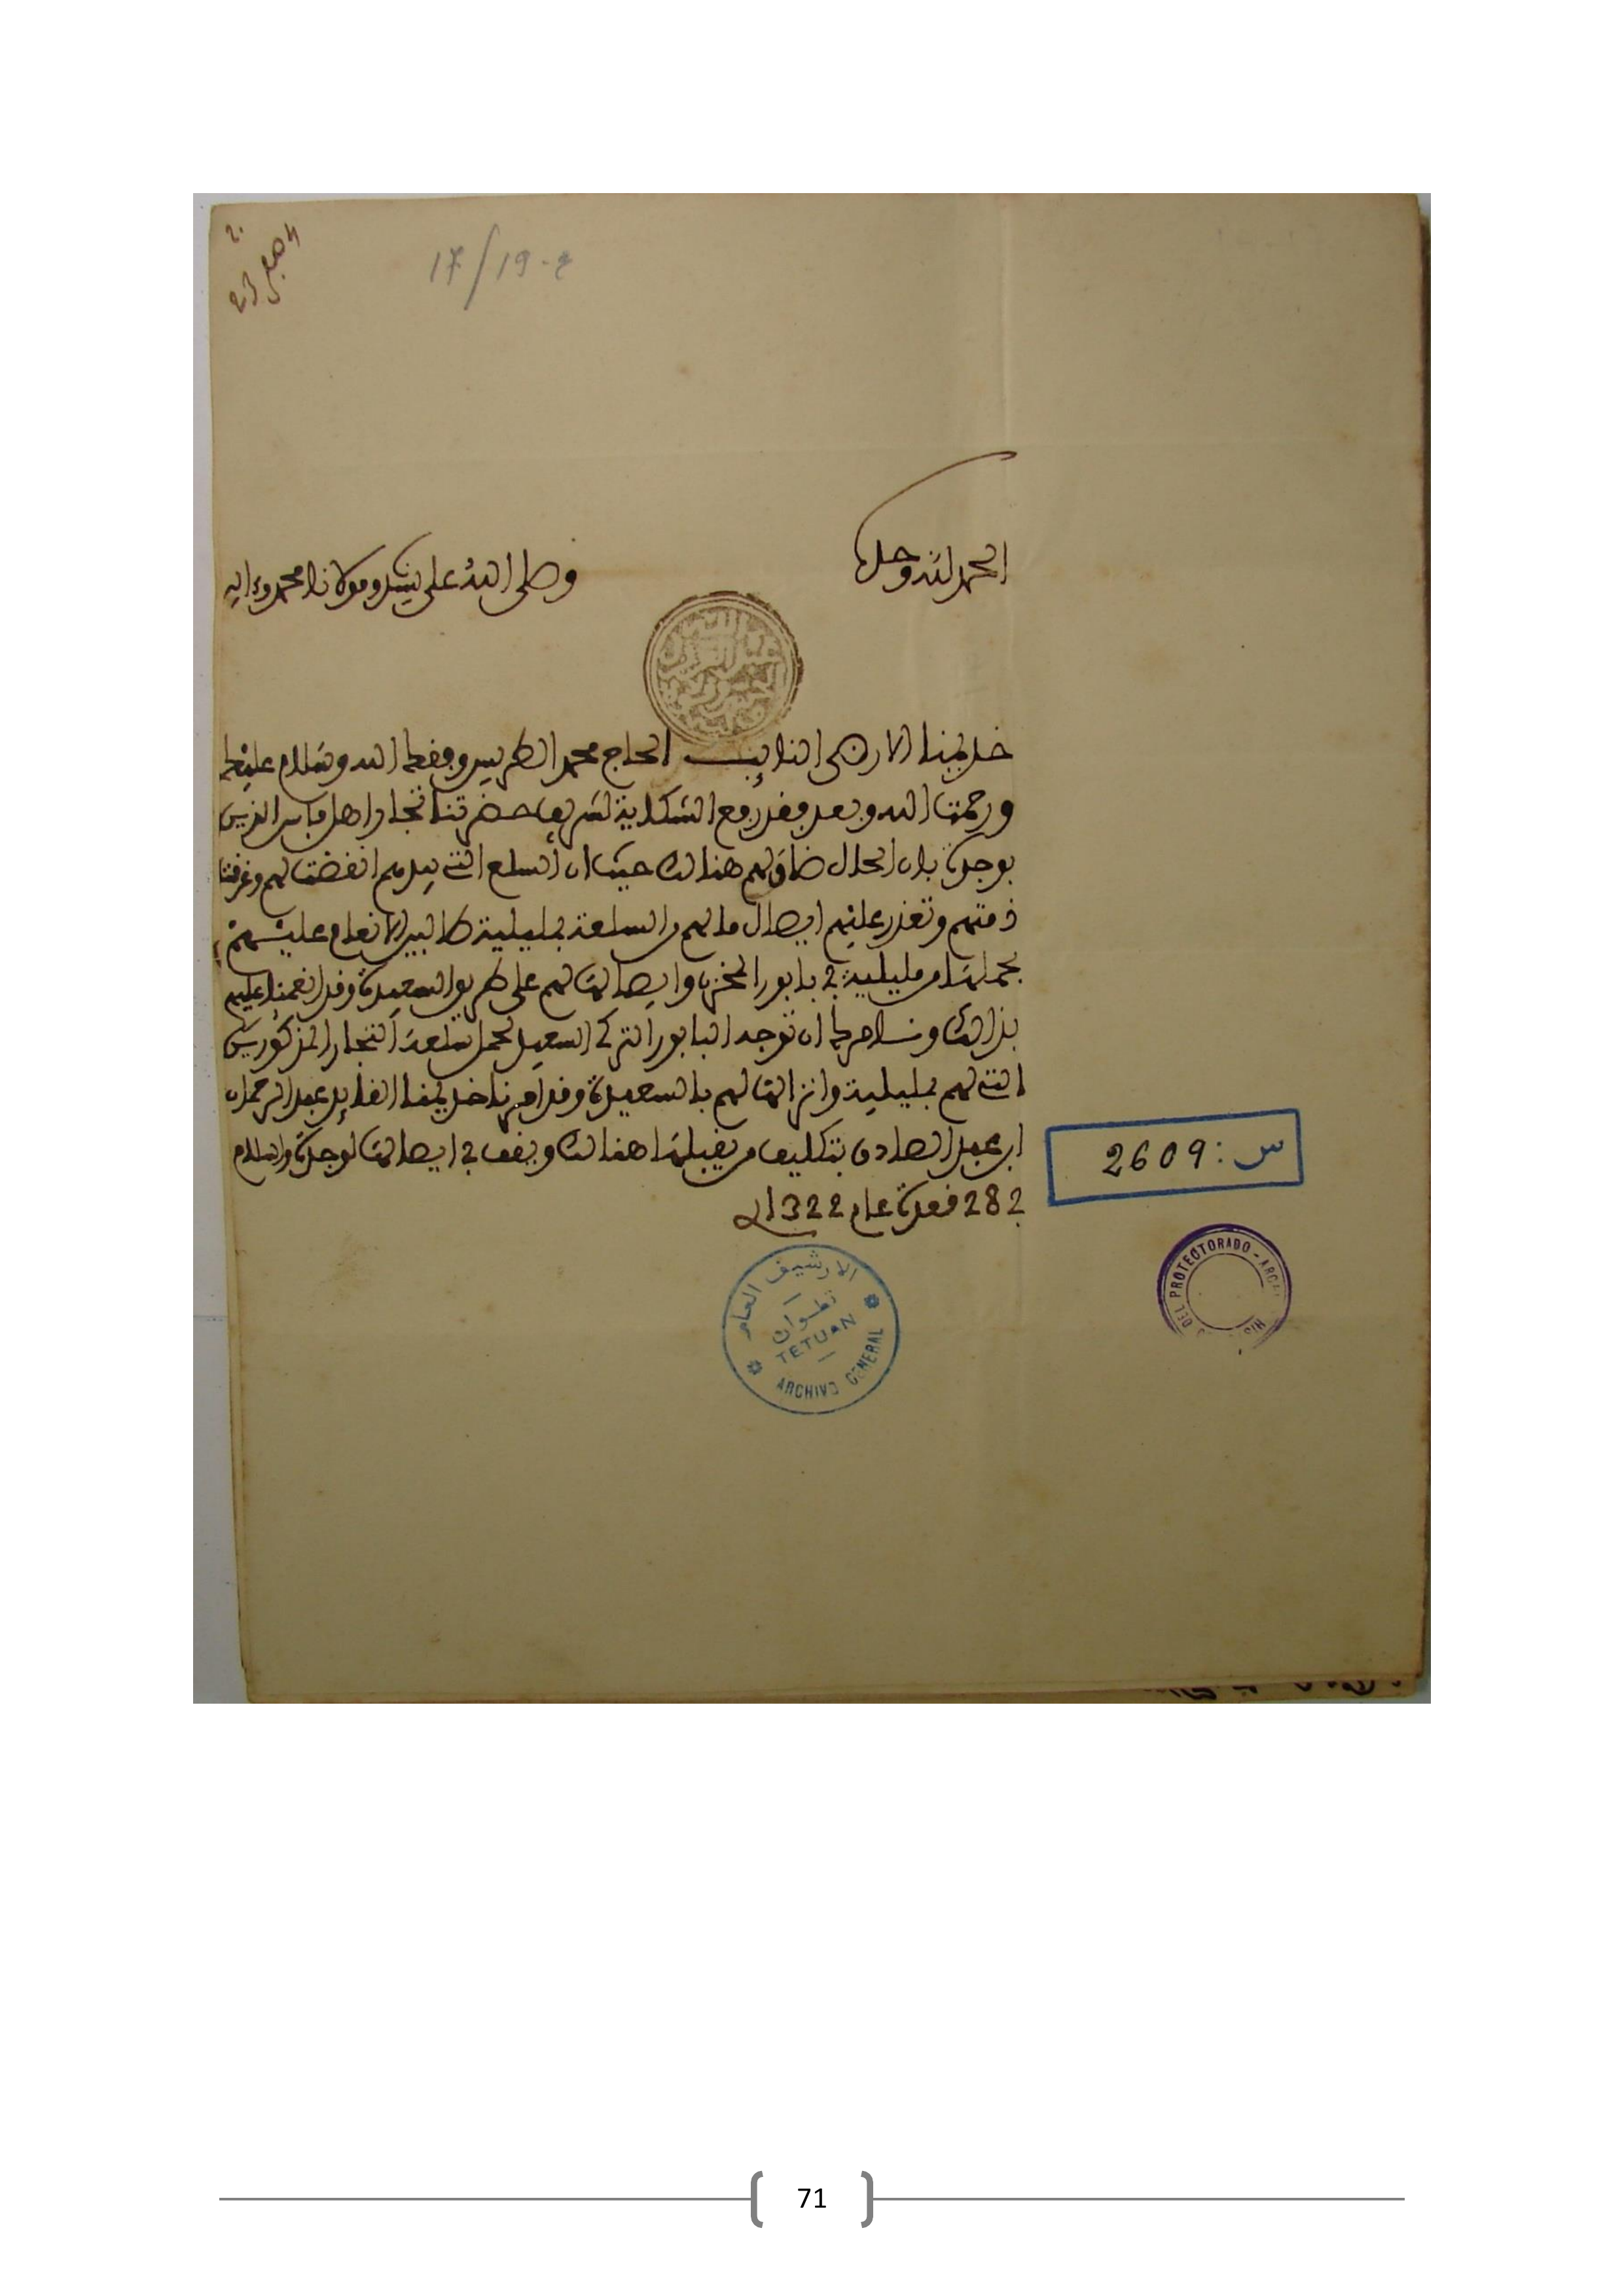 17/19-ع
23
الحمد لله وحده
وصلى الله على سيدنا ومولانا محمد وءاله
خديمنا الارضى النائب الحاج محمد الطريس وفقك الله وسلام عليك
ورحمت الله وبعد فقد رفع الشكاية لشريف حضرتنا تجار اهل فاس الذين
بوجدة بان الحال ضاق بهم هنالك حيث ان السلع التي بيدهم انقضت لهم وغرقت
ذمتهم وتعذر عليهم ايصال مالهم من السلعة بمليلية طالبين الانعام عليهم
بحملها من مليلية في بابور المخزن وايصالها لهم على طريق السعيدية وقد انعمنا عليهم
بذالك ونامرك ان توجه البابور التركي السعيد لحمل سلعة التجار المذكورين
التي لهم بمليلية وانزالها لهم بالسعيدية وقد امرنا خديمنا القايد عبد الرحمان
ابن عبد الصادق بتكليف من يقبلها هنالك ويقف في ايصالها لوجدة والسلام
في 28 قعدة عام 1322
س: 2609
الارشيف العام
تطوان
TETUAN
ARCHIVO GENERAL
DEL PROTECTORADO -
71